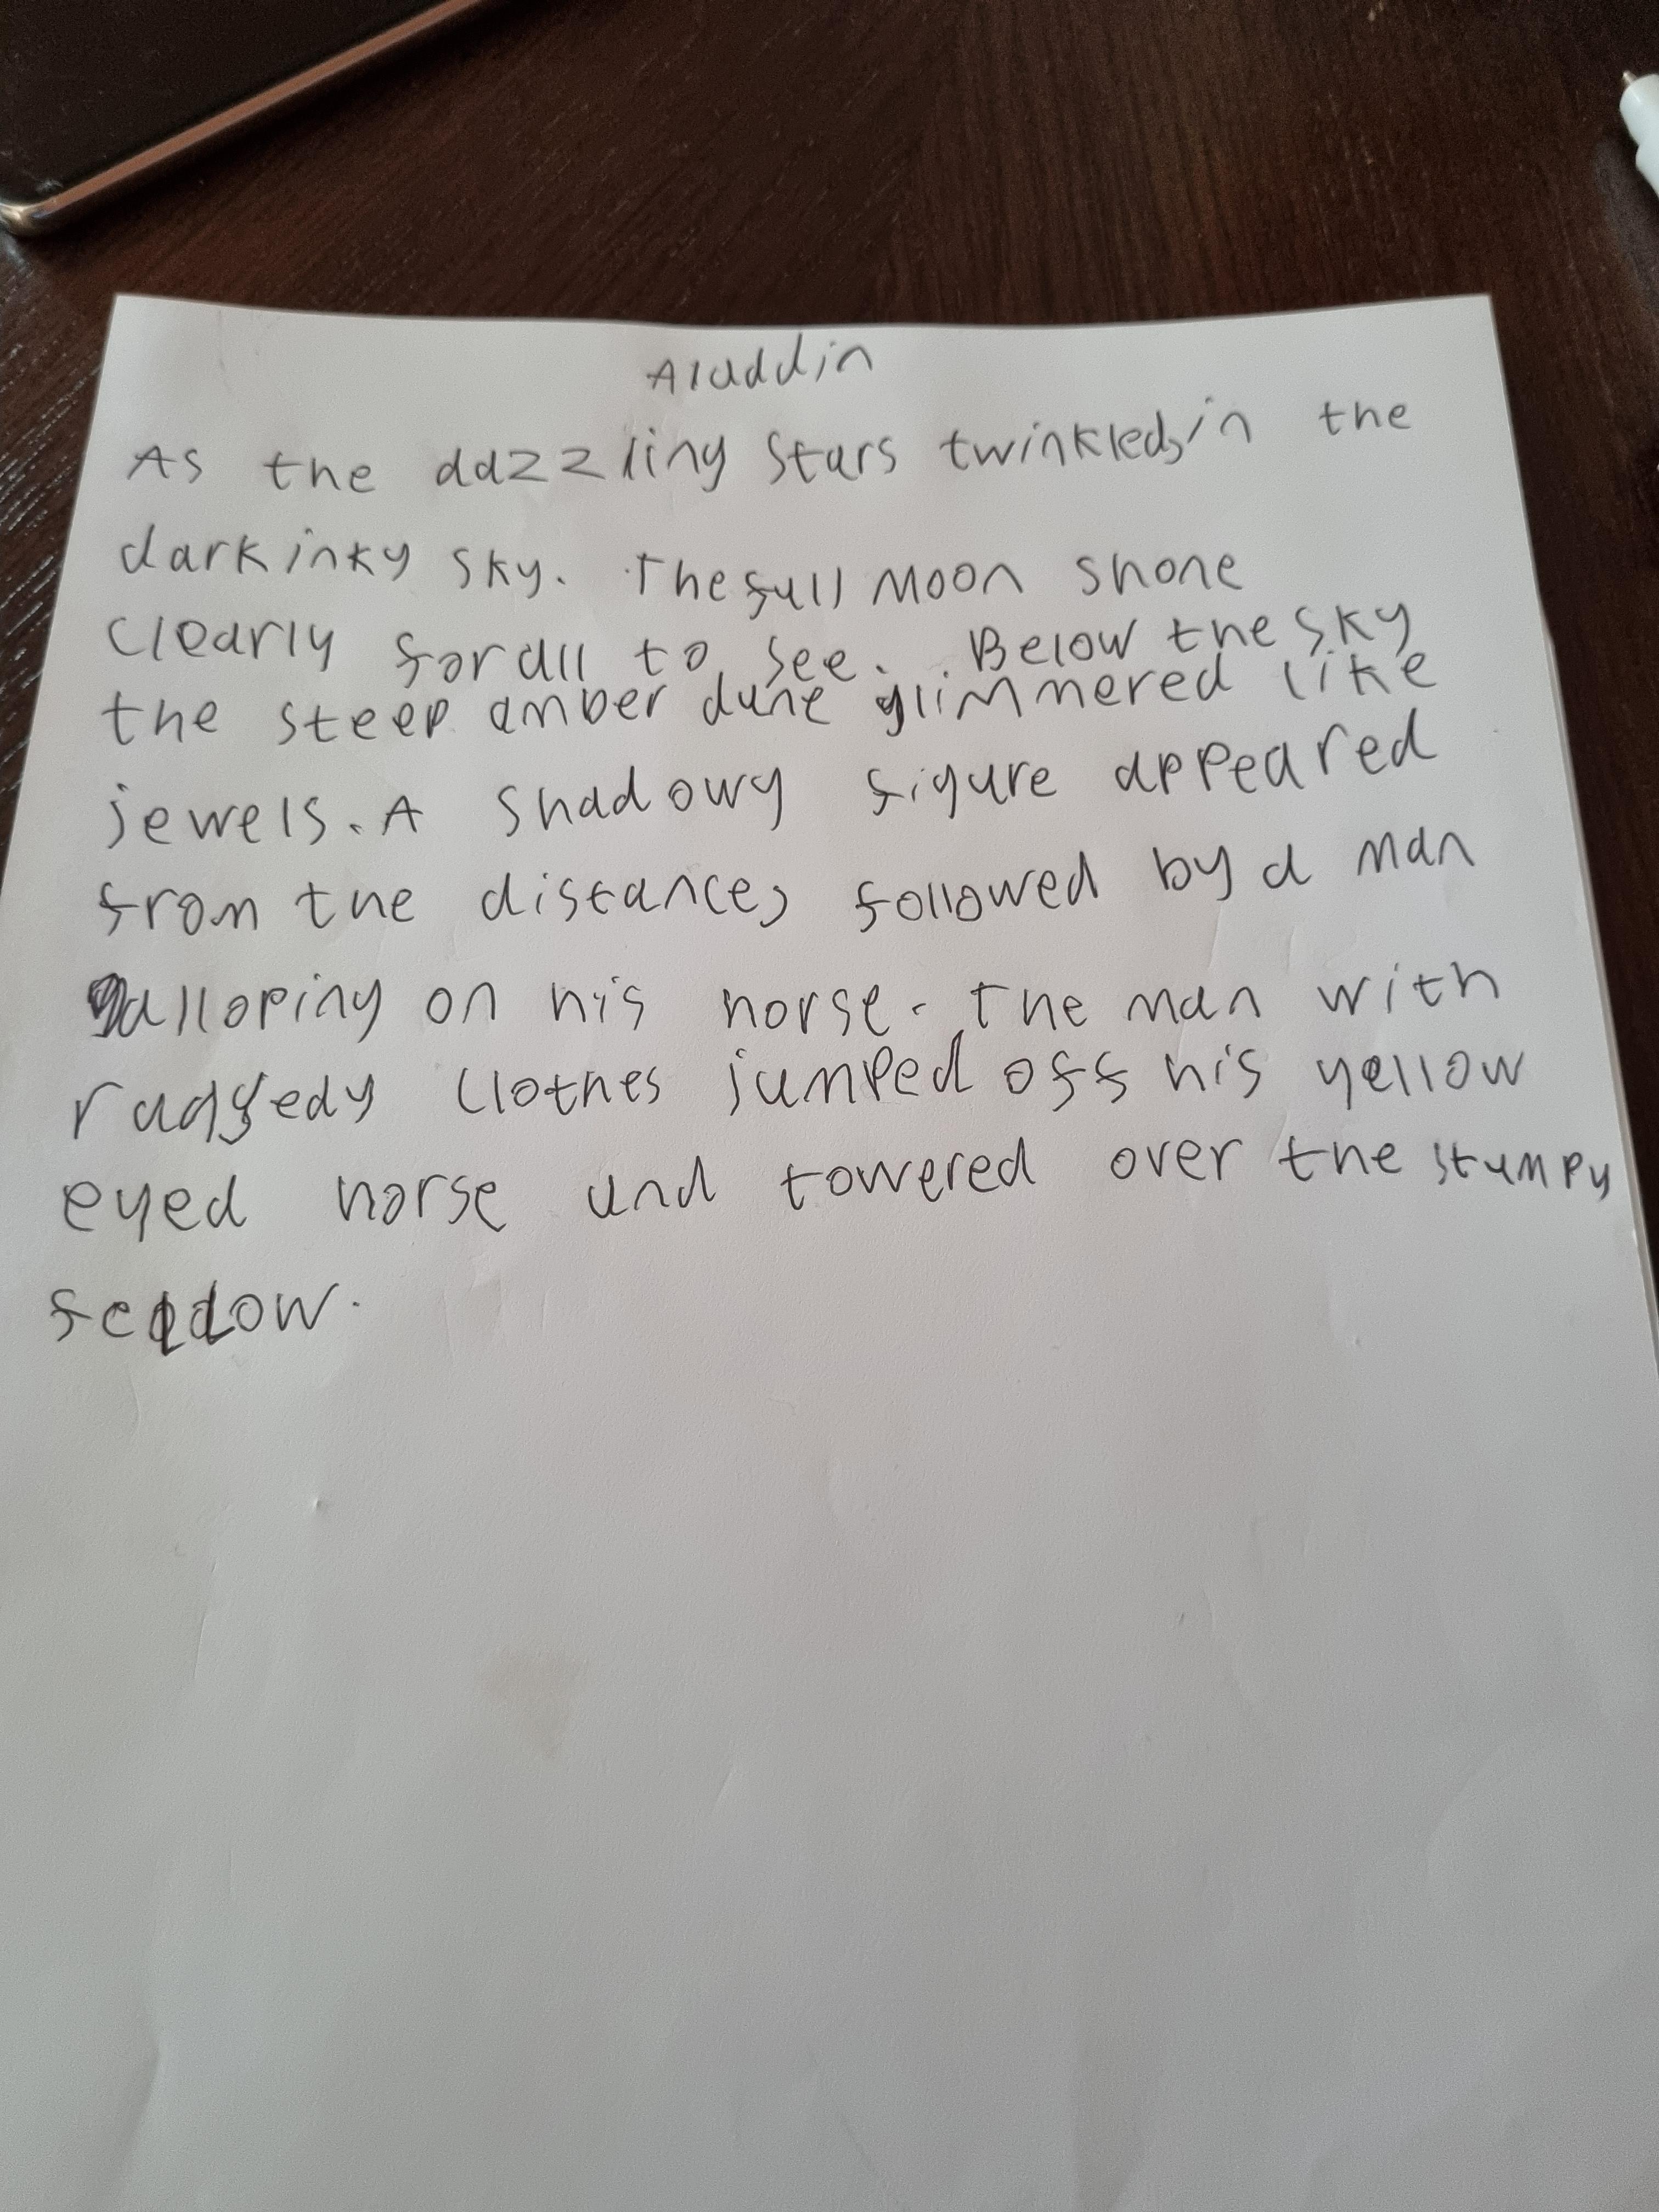 Aladdin
As the dazzling stars twinkled, in the
dark inky sky. The full moon shone
clearly for all to see. Below the sky
the steep amber dune glimmered like
jewels. A shadowy figure appeared
from the distance, followed by a man
galloping on his horse. The man with
raggedy clothes jumped off his yellow
eyed horse and towered over the stumpy
fellow.